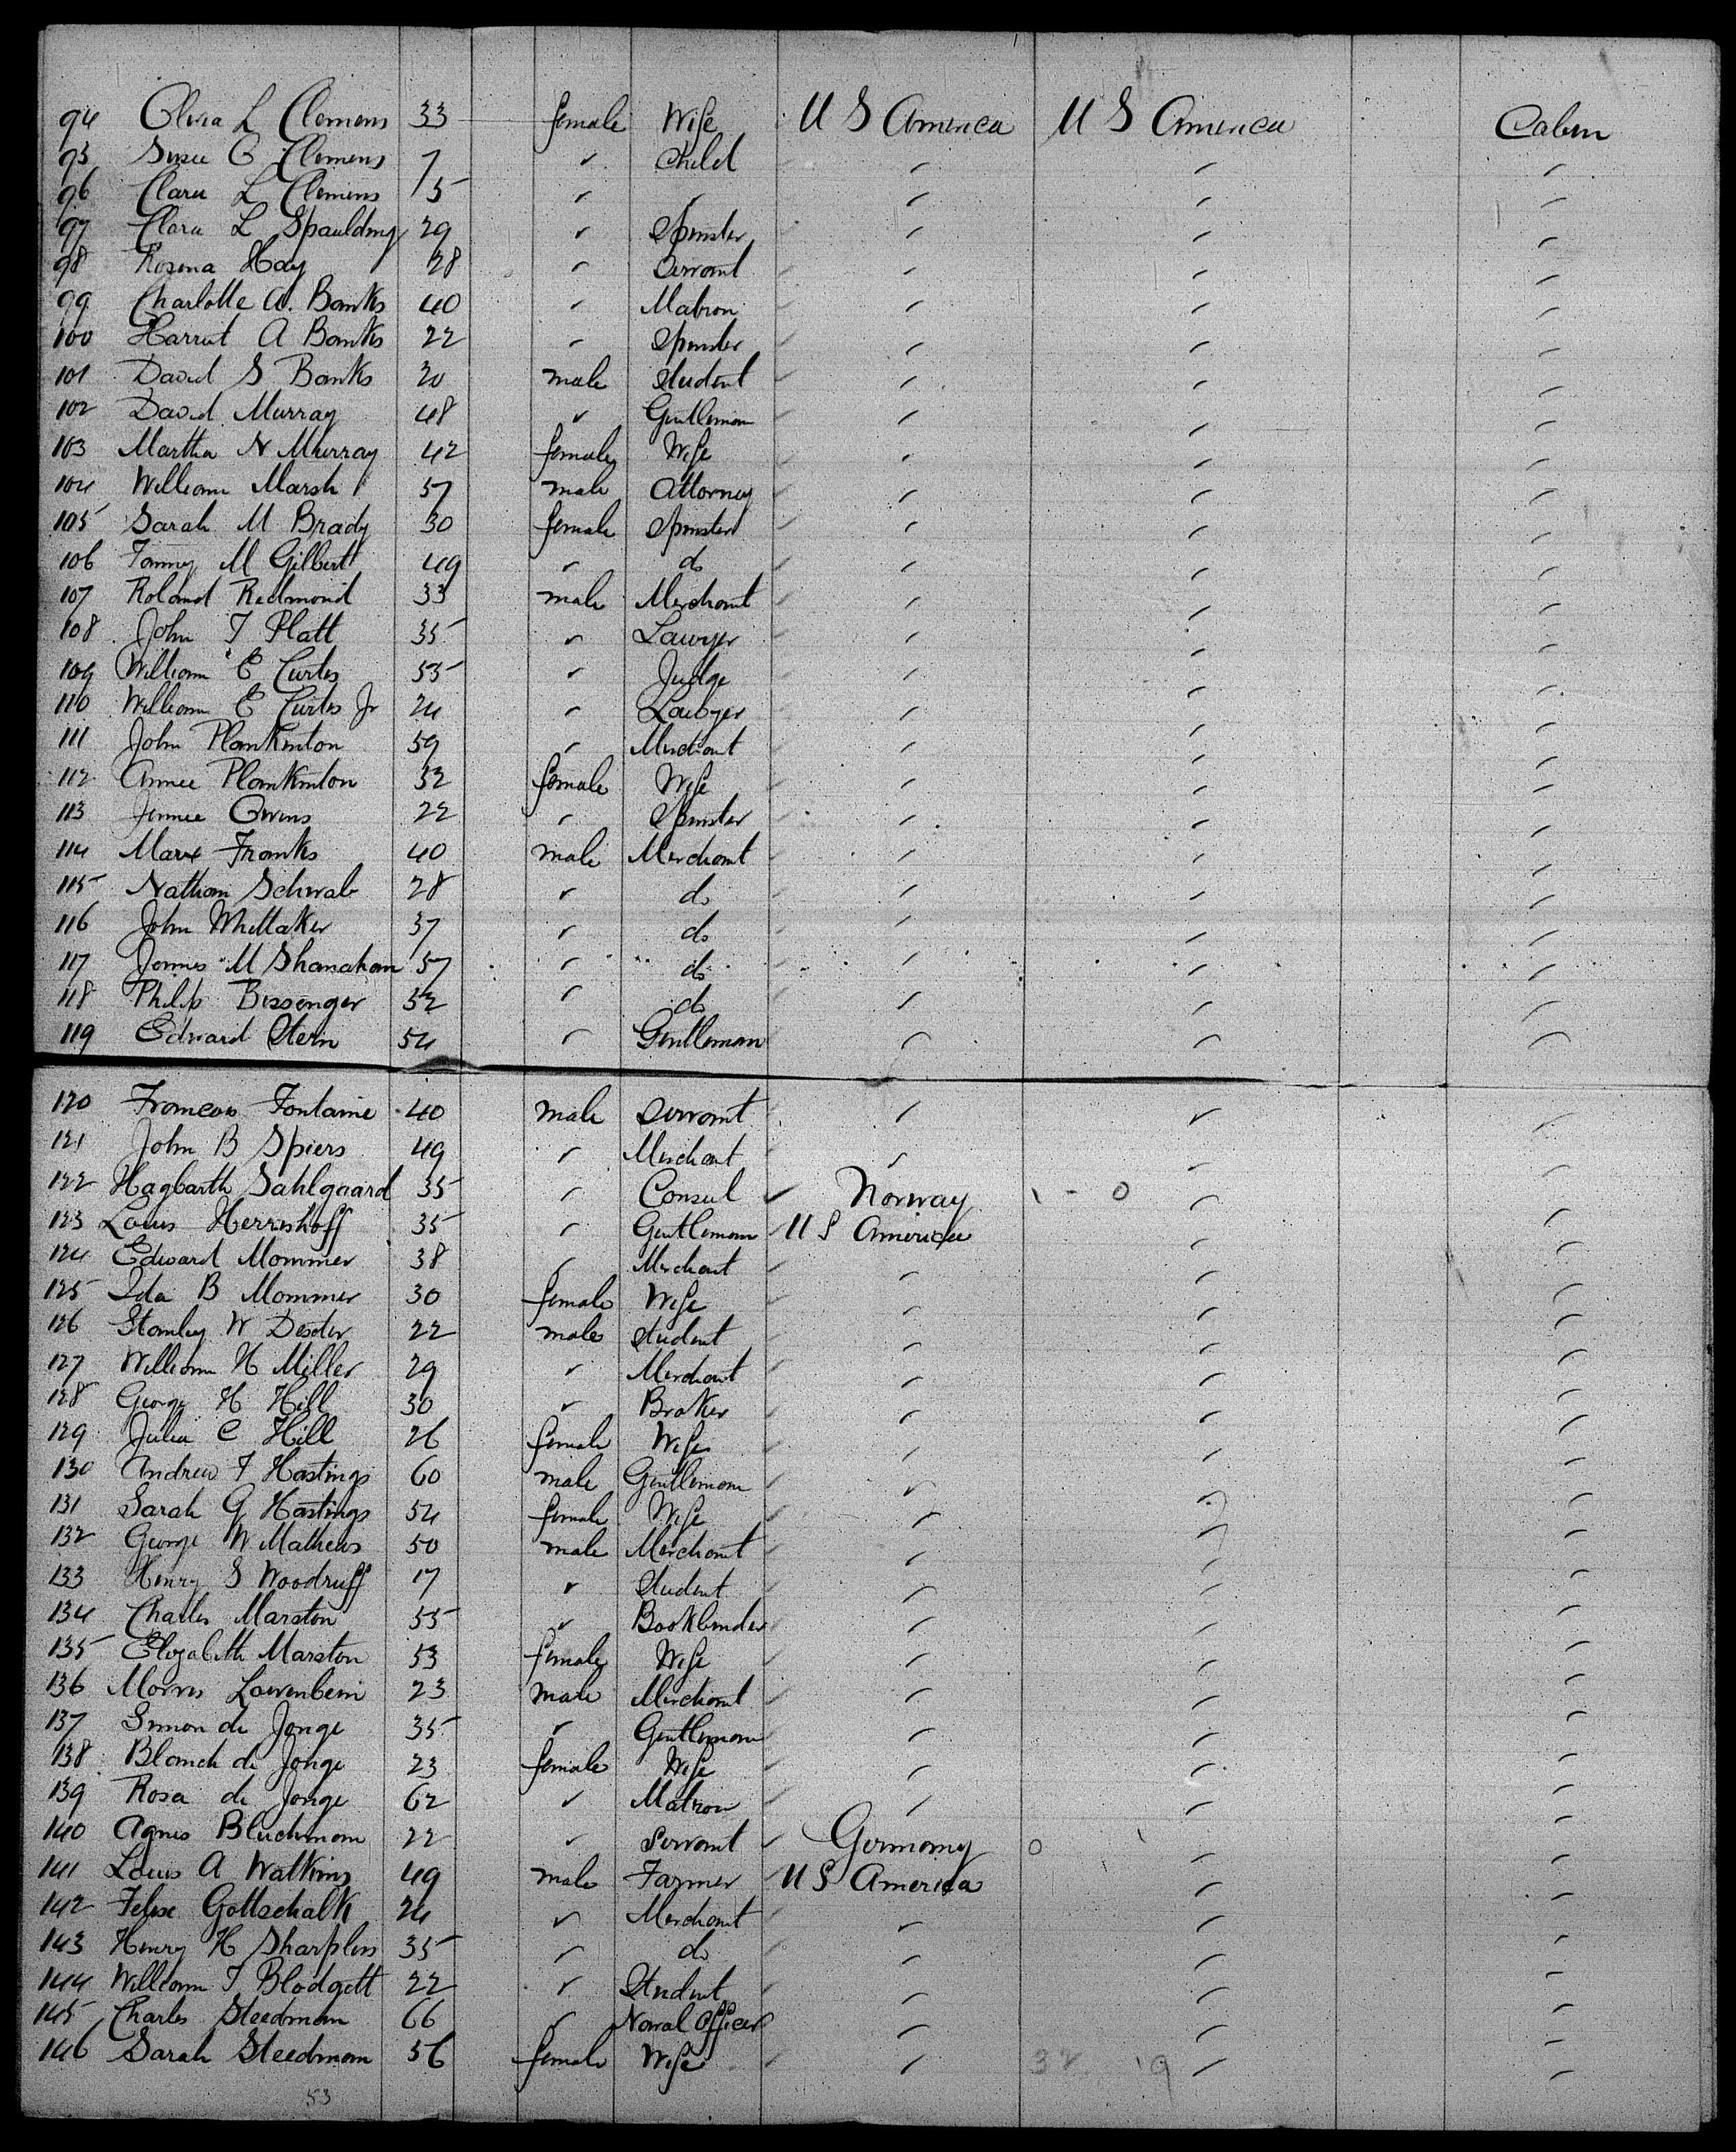 94 Olivia L Clemens 33 female Wife U S America U S America Cabin
95 Susie O Clemens 7 " Child " " "
96 Clara L Clemens 5 " " " " "
97 Clara L Spaulding 29 " Spinster " " "
98 Rosina Hay 28 " Servant " " "
99 Charlotte A. Banks 40 " Matron " " "
100 Harriet A Banks 22 " Spinster " " "
101 David S Banks 20 male Student " " "
102 David Murray 48 " Gentleman " " "
103 Martha N Murray 42 female Wife " " "
104 William Marsh 57 male Attorney " " "
105 Sarah M Brady 30 female Spinster " " "
106 Fanny M Gilbert 49 " do " " "
107 Roland Redmond 33 male Merchant " " "
108 John T Platt 35 " Lawyer " " "
109 William E Curtis 55 " Judge " " "
110 William E Curtis Jr 24 " Lawyer " " "
111 John Plankinton 59 " Merchant " " "
112 Annie Plankinton 52 female Wife " " "
113 Jennie Owens 22 " Spinster " " "
114 Marx Franks 40 male Merchant " " "
115 Nathan Schwab 28 " do " " "
116 John Whittaker 37 " do " " "
117 James M Shanahan 57 " do " " "
118 Philip Bissenger 52 " do " " "
119 Edward Stern 54 " Gentleman " " "
120 Francois Fontaine 40 male Servant " " "
121 John B Spiers 49 " Merchant " " "
122 Hagbarth Sahlgaard 35 " Consul Norway 1 - 0 " "
123 Louis Herrishoff 35 " Gentleman U S America " "
124 Edward Mommer 38 " Merchant " " "
125 Ida B Mommer 30 female Wife " " "
126 Stanley W Dexter 22 male Student " " "
127 William H Miller 29 " Merchant " " "
128 George H Hill 30 " Broker " " "
129 Julia C Hill 26 female Wife " " "
130 Andrew F Hastings 60 male Gentleman " " "
131 Sarah G Hastings 54 female Wife " " "
132 George W Mathews 50 male Merchant " " "
133 Henry S Woodruff 17 " Student " " "
134 Charles Marston 55 " Bookbinder " " "
135 Elizabeth Marston 53 female Wife " " "
136 Morris Lowenbein 23 male Merchant " " "
137 Simon de Jonge 35 " Gentleman " " "
138 Blanch de Jonge 23 female Wife " " "
139 Rosa de Jonge 62 " Matron " " "
140 Agnes Bluchmann 22 " Servant Germany 0 " "
141 Louis A Watkins 49 male Farmer U S America " "
142 Felix Gottschalk 24 " Merchant " " "
143 Henry H Sharpless 35 " do " " "
144 William T Blodgett 22 " Student " " "
145 Charles Steedman 66 " Naval Officer " " "
146 Sarah Steedman 56 female Wife " " "
32 19
53